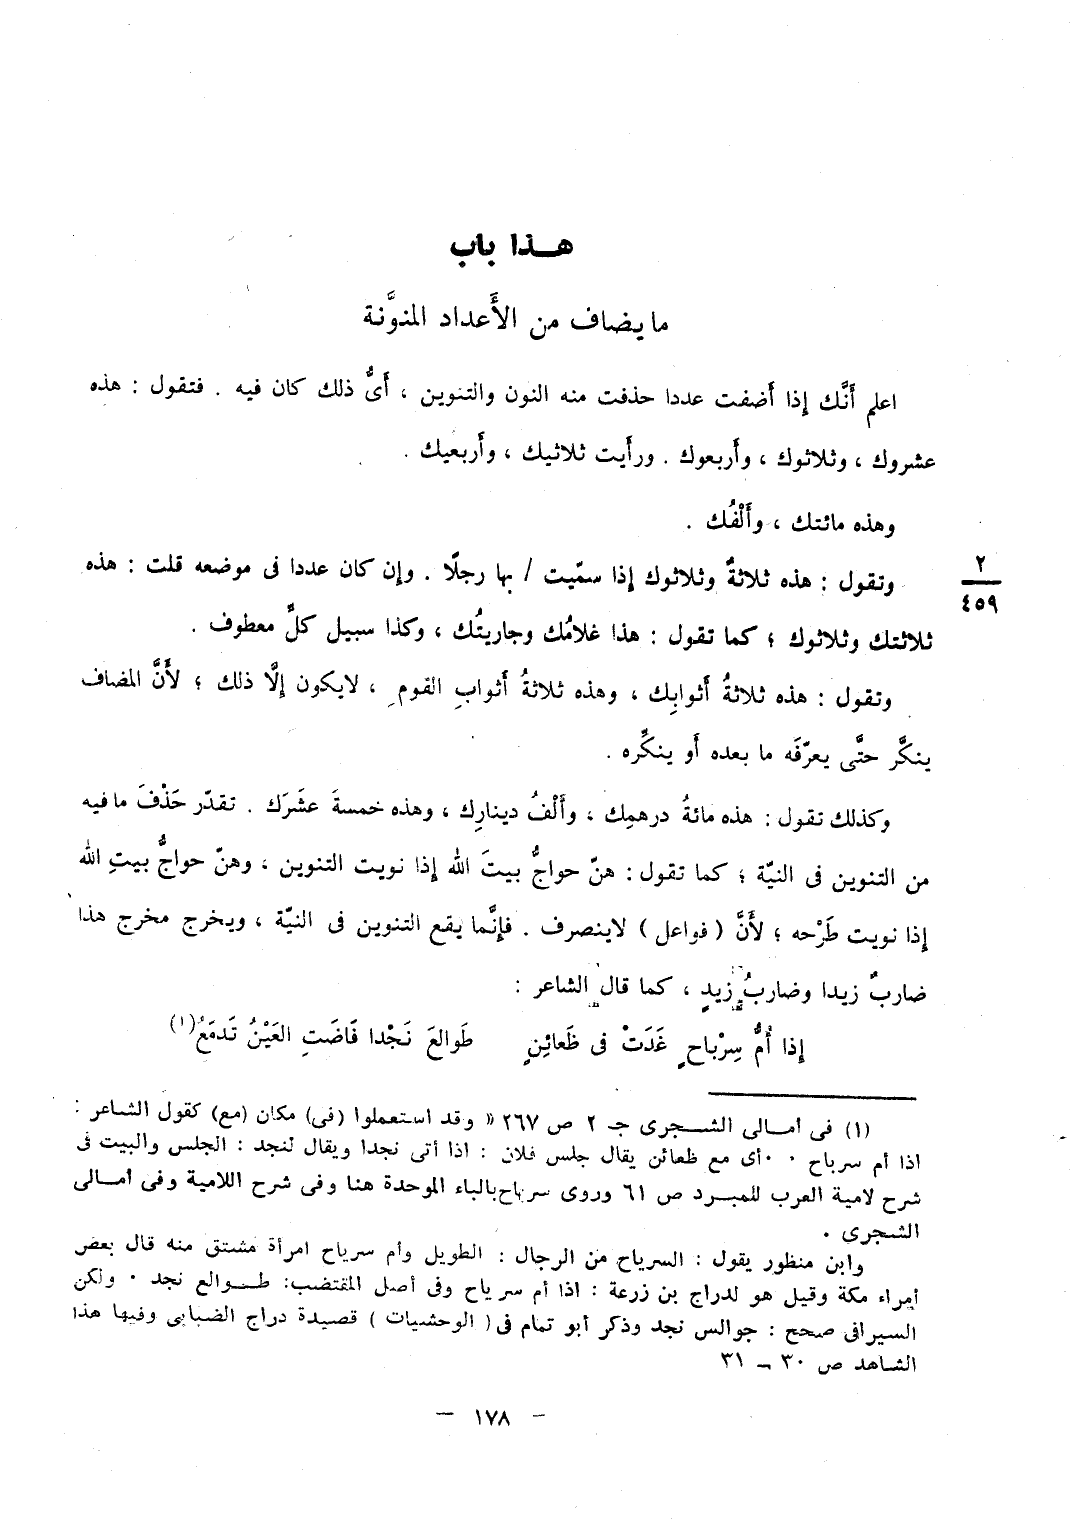 هــذا باب
ما يضاف من الأَعداد المنوَّنة
اعلم أَنَّك إذا أَضفت عددا حذفت منه النون والتنوين ، أَىُّ ذلك كان فيه . فتقول : هذه
عشروك ، وثلاثوك ، وأَربعوك . ورأَيت ثلاثيك ، وأَربعيك .
وهذه مائتك ، وأَلْفُك .
وتقول : هذه ثلاثةٌ وثلاثوك إذا سمّيت / بها رجلًا . وإن كان عددا فى موضعه قلت : هذه
٢
٤٥٩
ثلاثتك وثلاثوك ؛ كما تقول : هذا غلامُك وجاريتُك ، وكذا سبيل كلِّ معطوف .
وتقول : هذه ثلاثةُ أَثوابِك ، وهذه ثلاثةُ أَثوابِ القومِ ، لايكون إلَّا ذلك ؛ لأَنَّ المضاف
ينكَّر حتَّى يعرّفَه ما بعده أَو ينكِّره .
وكذلك تقول : هذه مائةُ درهمِك ، وأَلْفُ دينارِك ، وهذه خمسةَ عشَرَك . تقدّر حَذْفَ ما فيه
من التنوين فى النيّة ؛ كما تقول : هنّ حواجُّ بيتَ الله إذا نويت التنوين ، وهنّ حواجُّ بيتِ الله
إذا نويت طَرْحه ؛ لأَنَّ ( فواعل ) لاينصرف . فإنَّما يقع التنوين فى النيّة ، ويخرج مخرج هذا
ضاربٌ زيدا وضاربُ زيدٍ ، كما قال الشاعر :
إذا أُمُّ سِرْباحٍ غَدَتْ فى ظَعائِنٍ طَوالعَ نَجْدا فَاضَتِ العَيْنُ تَدمَعُ(١)
(١) فى أمــالى الشــجرى جـ ٢ ص ٢٦٧ « وقد استعملوا (فى) مكان (مع) كقول الشاعر :
اذا أم سرباح ٠٠ أى مع ظعائن يقال جلس فلان : اذا أتى نجدا ويقال لنجد : الجلس والبيت فى
شرح لامية العرب للمبــرد ص ٦١ وروى سرباح بالباء الموحدة هنا وفى شرح اللامية وفى أمــالى
الشجرى .
وابن منظور يقول : السرياح من الرجال : الطويل وأم سرياح امرأة مشتق منه قال بعض
أمراء مكة وقيل هو لدراج بن زرعة : اذا أم سرياح وفى أصل المقتضب: طــوالع نجد ٠ ولكن
السيرافى صحح : جوالس نجد وذكر أبو تمام فى ( الوحشيات ) قصيدة دراج الضبابى وفيها هذا
الشاهد ص ٣٠ ــ ٣١
– ١٧٨ –